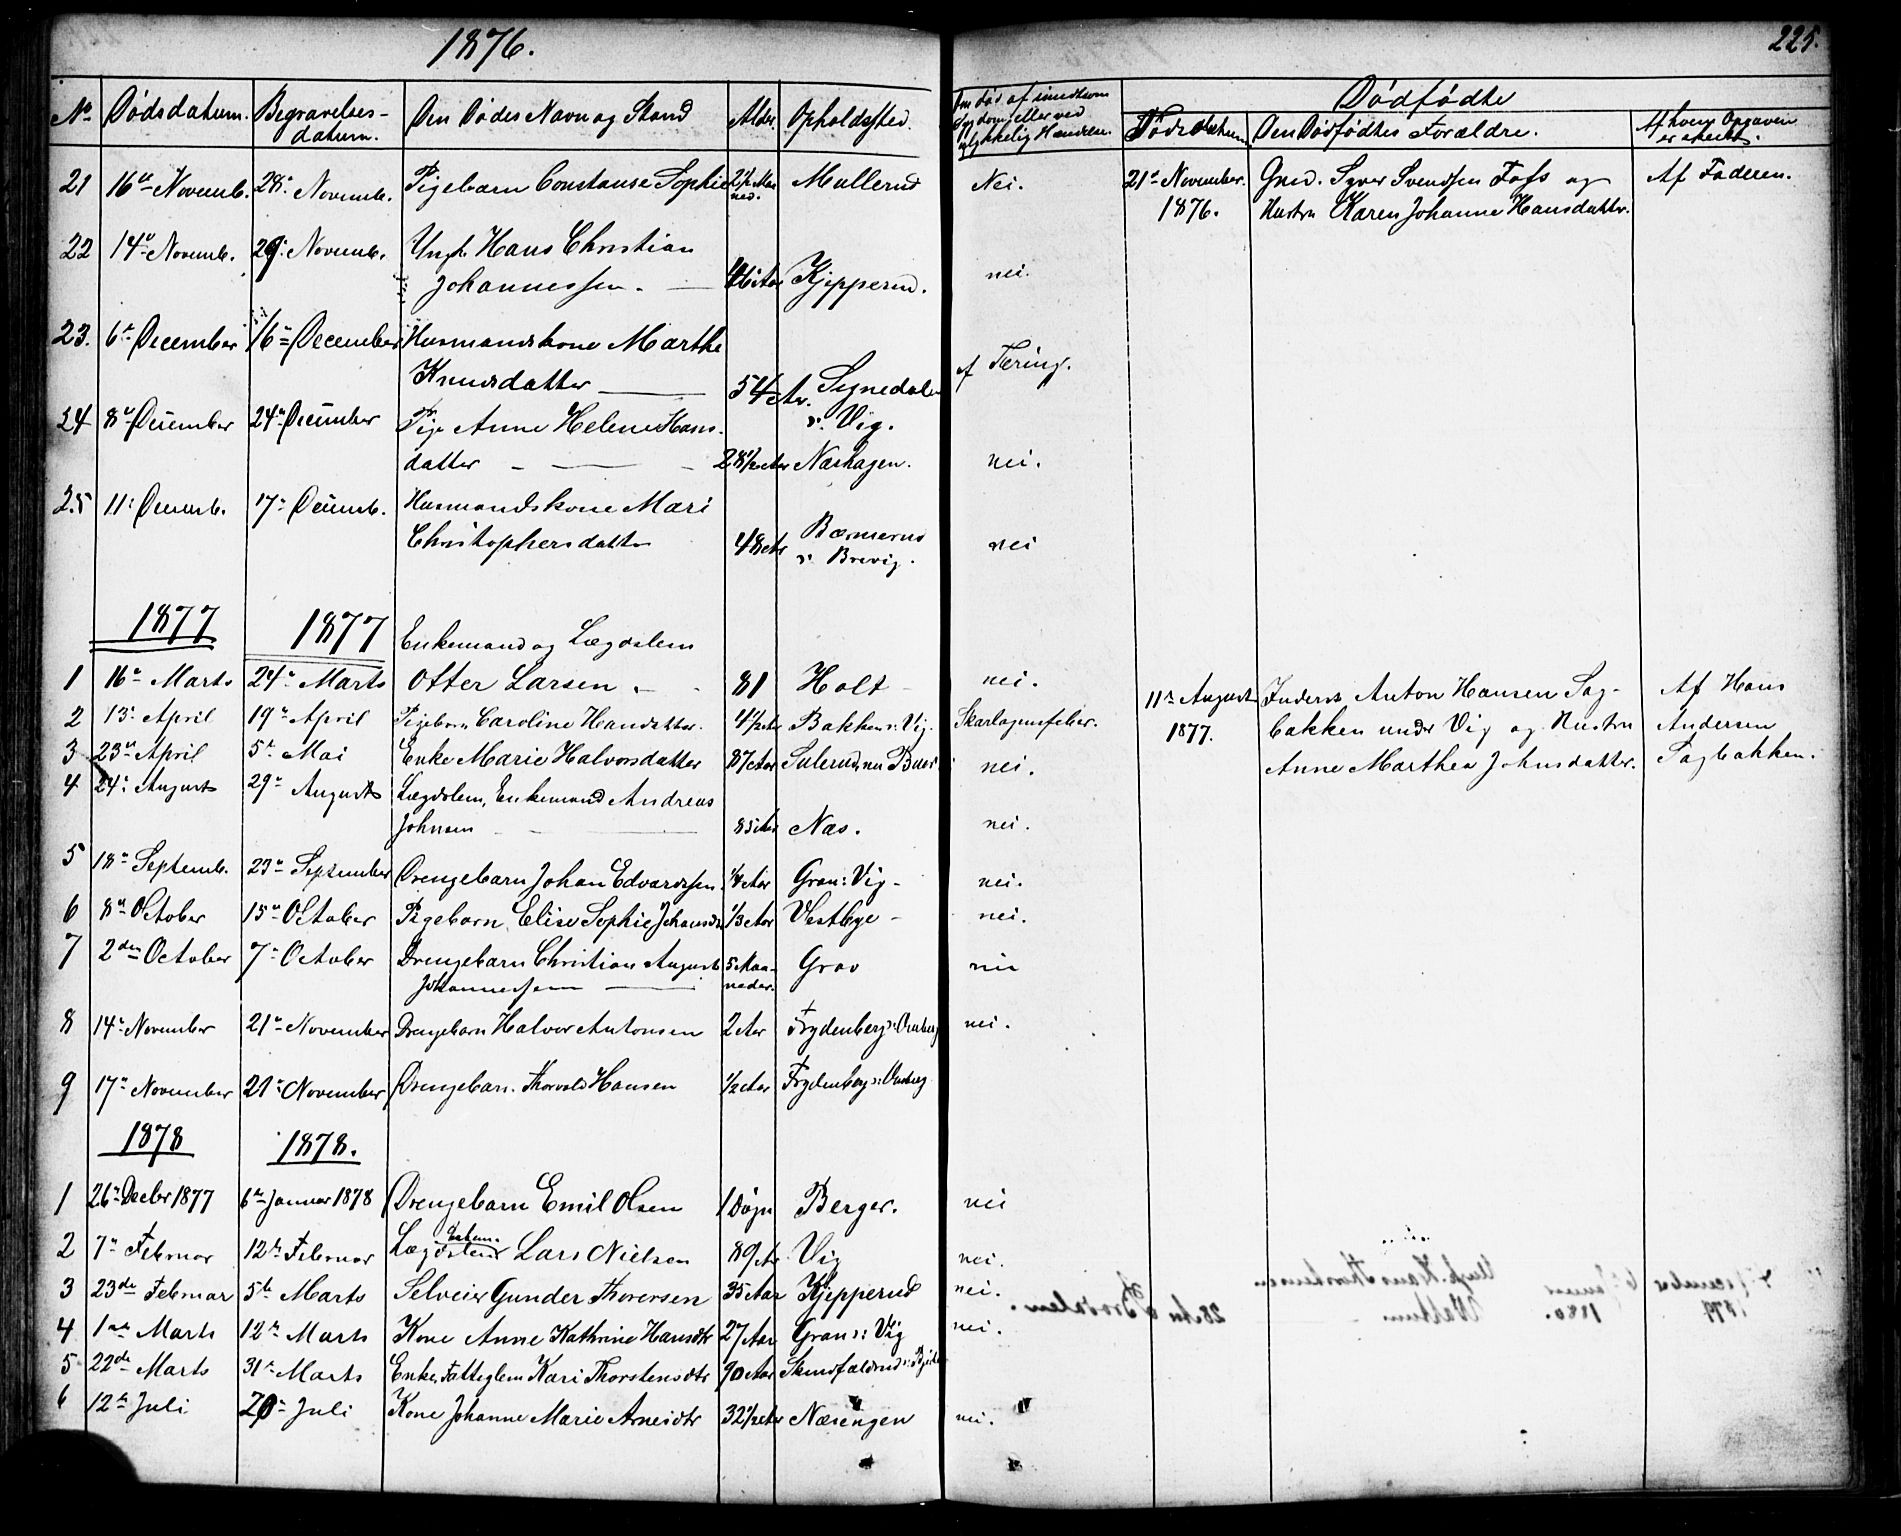 1876.
225.
No Dødsdatum. Begravelses- Den Dødes Navn og Stand Alder. Opholdssted. Om død af smitsom Dødfødte
datum. Sygdom eller ved ulykkelig Hændelse. Fødselsdatum Den Dødfødtes Forældre. Af hvem Opgaven er skeet.
21 16de Novemb. 28de Novemb. Pigebarn Constanse Sophie 2½ Maaned. Mullerud Nei. 21de November. Gmd. Syver Svendsen Foss og Af Faderen.
1876. Hustru Karen Johanne Hansdatter.
22 14de Novemb. 29de Novemb. Ungk. Hans Christian
Johannessen. Aar Kjepperud. nei.
23. 6te December 16de December Husmandskone Marthe
Knudsdatter 54 Ar. Segnedalen af Tæring.
24 8de December 24de December Pige Anne Helene Hans- u. Vig.
datter 28½ Aar Næshagen. nei.
25 11te Decemb. 17de Decemb. Husmandskone Mari
Christophersdatter 48 Ar Bærnerud nei
u. Brevig.
1877 1877 Enkemand og Lægdslem
1 16de Marts 24de Marts Otter Larsen. 81 Holt nei. 11te August Inderst Anton Hansen Sag- Af Hans
2 13de April 19de April Pigebarn Caroline Hansdatter. 4½ Aar Bakken u. Vig. Skarlagensfeber. 1877. bakken under Vig og Hustru Andersen
3 23de April 5te Mai Enke Marie Halvorsdatter 87 Aar Sulerud nei. Anne Marthea Johnsdatter. Sagbakken.
4 24de August 29de August Lægdslem, Enkemand Andreas
Johnsen 85 Aar Næs. nei.
5 18de Septemb. 23de September Drengebarn Johan Edvardsen. ¼ Aar Gran: Vig nei.
6 8de October 15de October Pigebarn Elise Sophie Johansdr ⅓ Aar Vestbye nei.
7 2den October 7de October Drengebarn Christian August 5 Maa- Grav nei
Johannessen neder.
8 14de November 21de November Drengebarn Halvor Antonsen 2 Aar Frydenberg nei.
9 17de November 21de November Drengebarn. Thorvald Hansen ½ Aar Frydenberg
1878 1878.
1 26de Decbr 1877 6te Januar 1878 Drengebarn Emil Olsen 1 Døgn Berger. nei
Enkem.
2 7de Februar 12te Februar Lægdslem Lars Nielsen 89 Ar Vig nei.
3 23de Februar 5te Marts Selveier Gunder Thoresen 35 Aar Kjepperud nei.
4 1ste Marts 12te Marts Kone Anne Kathrine Hansdtr 27 Aar Gran u: Vig nei.
5 22de Marts 31te Marts Enke, Fattiglem Kari Thorstensdtr 90 Aar
6 12te Juli 20de Juli Kone Johanne Marie Arnesdtr 32½ Ar Næsengen nei.